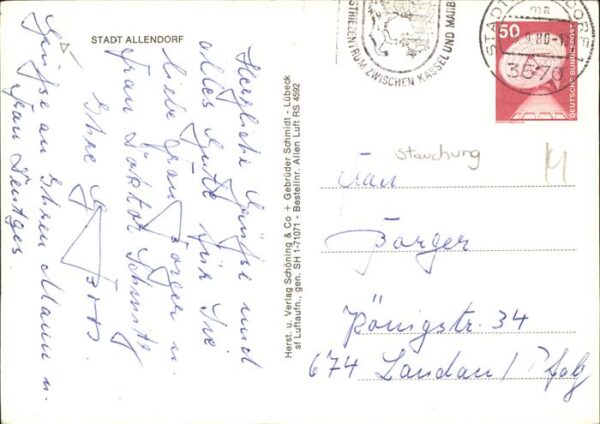 STADT ALLENDORF
Herzliche Grüße und
alles Gute für Sie
liebe Frau Borger u.
Frau Doktor Schmitz
Ihre
Grüße an Ihren Mann u.
Frau Dentges
Herst. u. Verlag Schöning & Co + Gebrüder Schmidt - Lübeck
sf Luftaufn., gen. SH 1-71071 - Bestellnr. Allen Luft RS 4592
STRIEZENTRUM ZWISCHEN KASSEL UND MARB
STADT DORF 1
ma
80-1
3570
50
DEUTSCHE BUNDESPOST
Stauchung
Frau
Borger
Königstr. 34
674 Landau / Pfalz